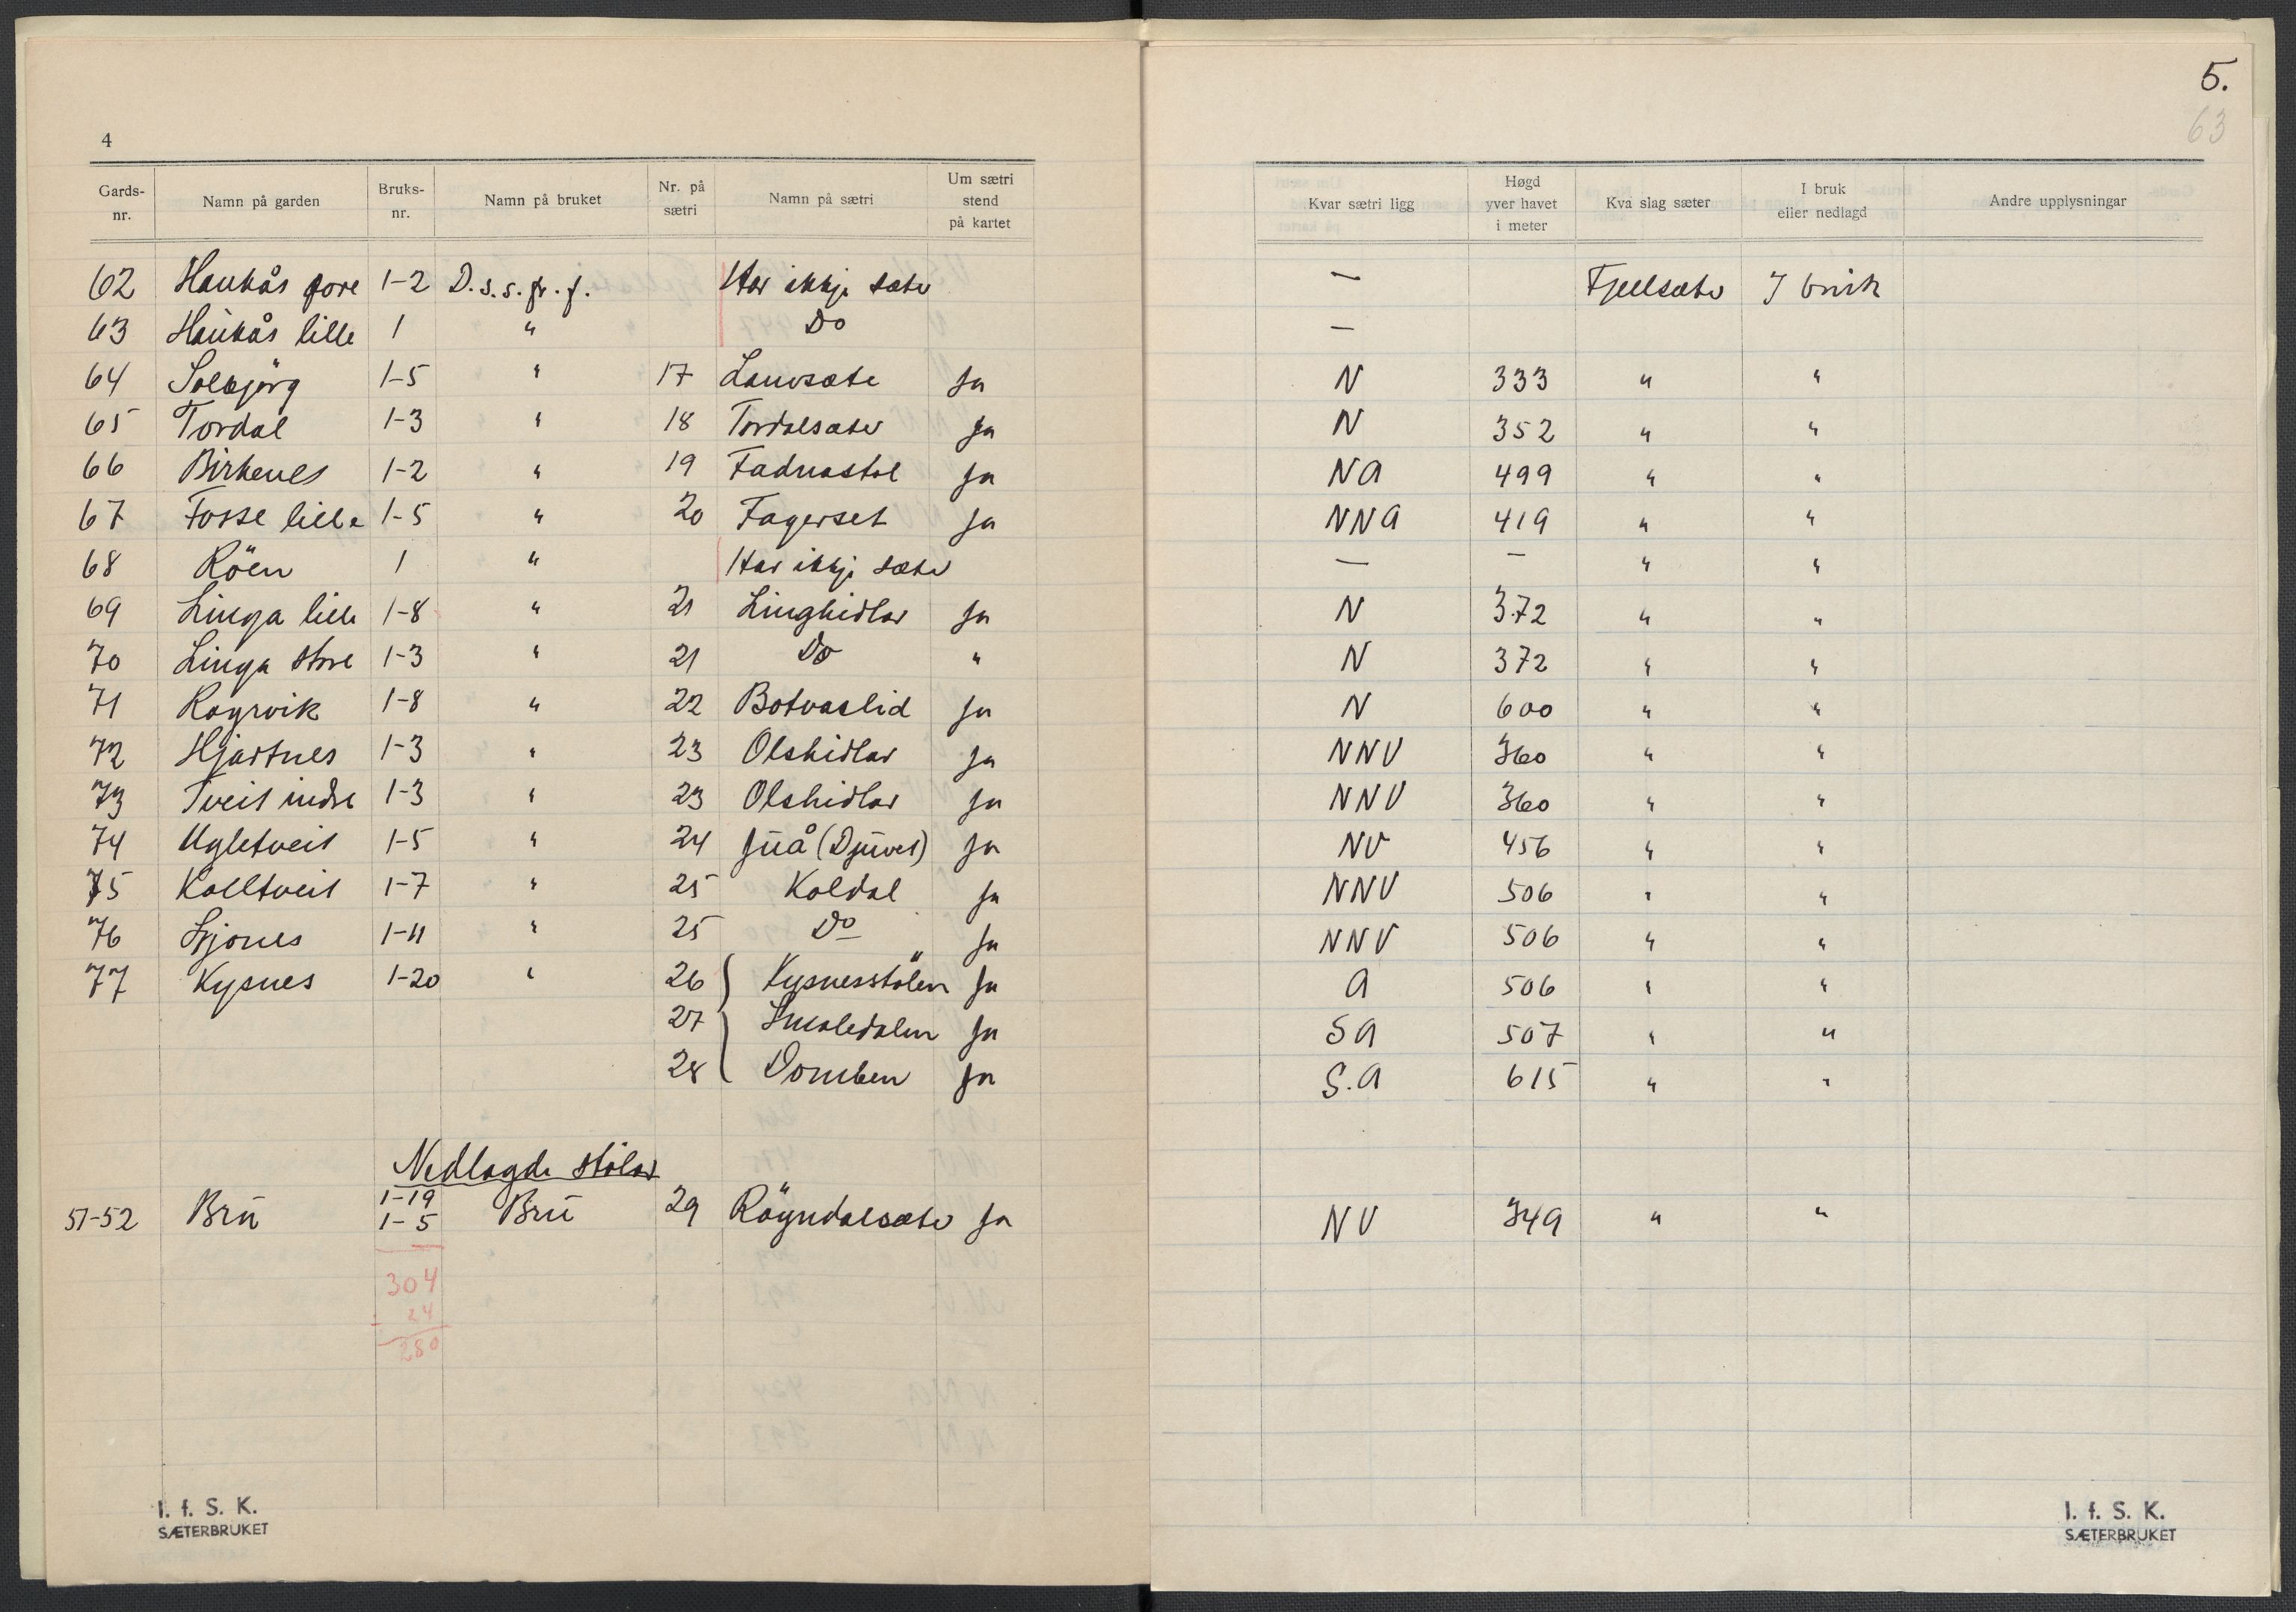 5.
63
4
Gards-nr. Namn på garden Bruks-nr. Namn på bruket Nr. på sætri Namn på sætri Um sætri stend på kartet Kvar sætri ligg Høgd yver havet i meter Kva slag sæter I bruk eller nedlagd Andre upplysningar
62 Haukås 1-2 D.s.s.fr.f. Har ikkje sæter — Fjellsæter I bruk
63 Haukås lille 1 " Do —
64 Solbjörg 1-5 " 17 Lauvsæte Ja N 333 " "
65 Tordal 1-3 " 18 Tordalsæter Ja N 352 " "
66 Birkenes 1-2 " 19 Fadnastøl Ja NA 499 " "
67 Fosse lille 1-5 " 20 Fagerset Ja NNA 419 " "
68 Röen 1 " Har ikkje sæter — — " "
69 Linga lille 1-8 " 21 Linghidlar Ja N 372 " "
70 Linga store 1-3 " 21 Do " N 372 " "
71 Røyrvik 1-8 " 22 Botnaslid Ja N 600 " "
72 Hjartnes 1-3 " 23 Olshidlar Ja NNV 360 " "
73 Tveit indre 1-3 " 23 Olshidlar Ja NNV 360 " "
74 Ugletveit 1-5 " 24 Juå (Djuvet) Ja NV 456 " "
75 Kolltveit 1-7 " 25 Koldal Ja NNV 506 " "
76 1-11 " 25 Do Ja NNV 506 " "
77 Kysnes 1-20 " 26 Kysnesstölen Ja A 506 " "
27 Smaledalen Ja SA 507 " "
28 Domben Ja S.A 615 " "
Nedlagde stölar
1-19
51-52 Bru 1-5 Bru 29 Röyndalsæter Ja NV 349 " "
304
- 24
280
I. f. S. K.
SÆTERBRUKET
I. f. S. K.
SÆTERBRUKET